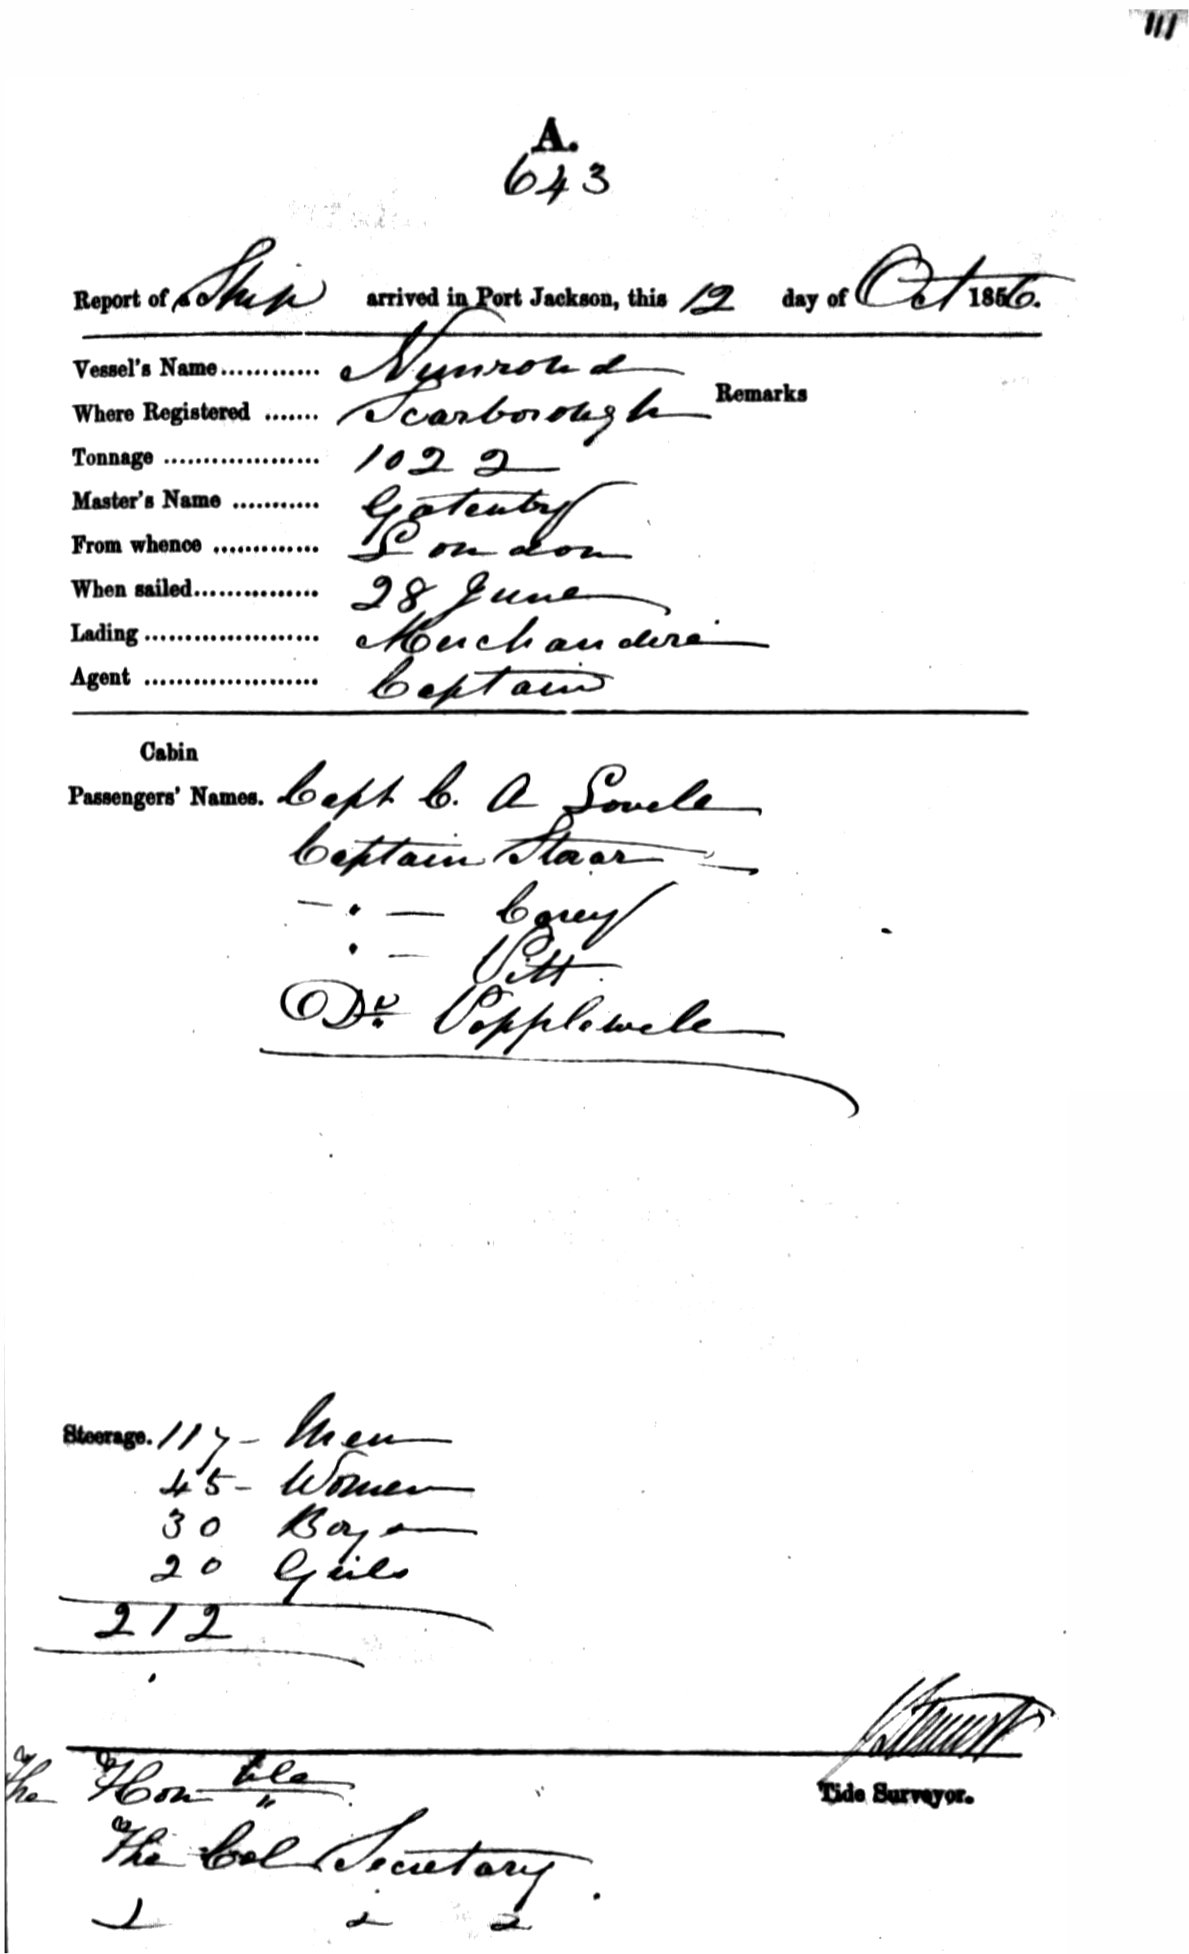 111
A.
643
Report of a Ship arrived in Port Jackson, this 12 day of Oct 1856.
Vessel's Name............ Nimroud
Remarks
Where Registered ....... Scarborough
Tonnage .................... 1022
Master's Name ........... Gatenby
From whence ............. London
When sailed................ 28 June
Lading ...................... Merchandise
Agent ...................... Captain
Cabin
Passengers' Names. Capt C. A Lovell
Captain Staar
— " — Corey
" — Pitt
Dr. Popplewell
Steerage. 117 - Men
45 - Women
30 Boys
20 Girls
212
Tide Surveyor.
The Honble
The Col Secretary